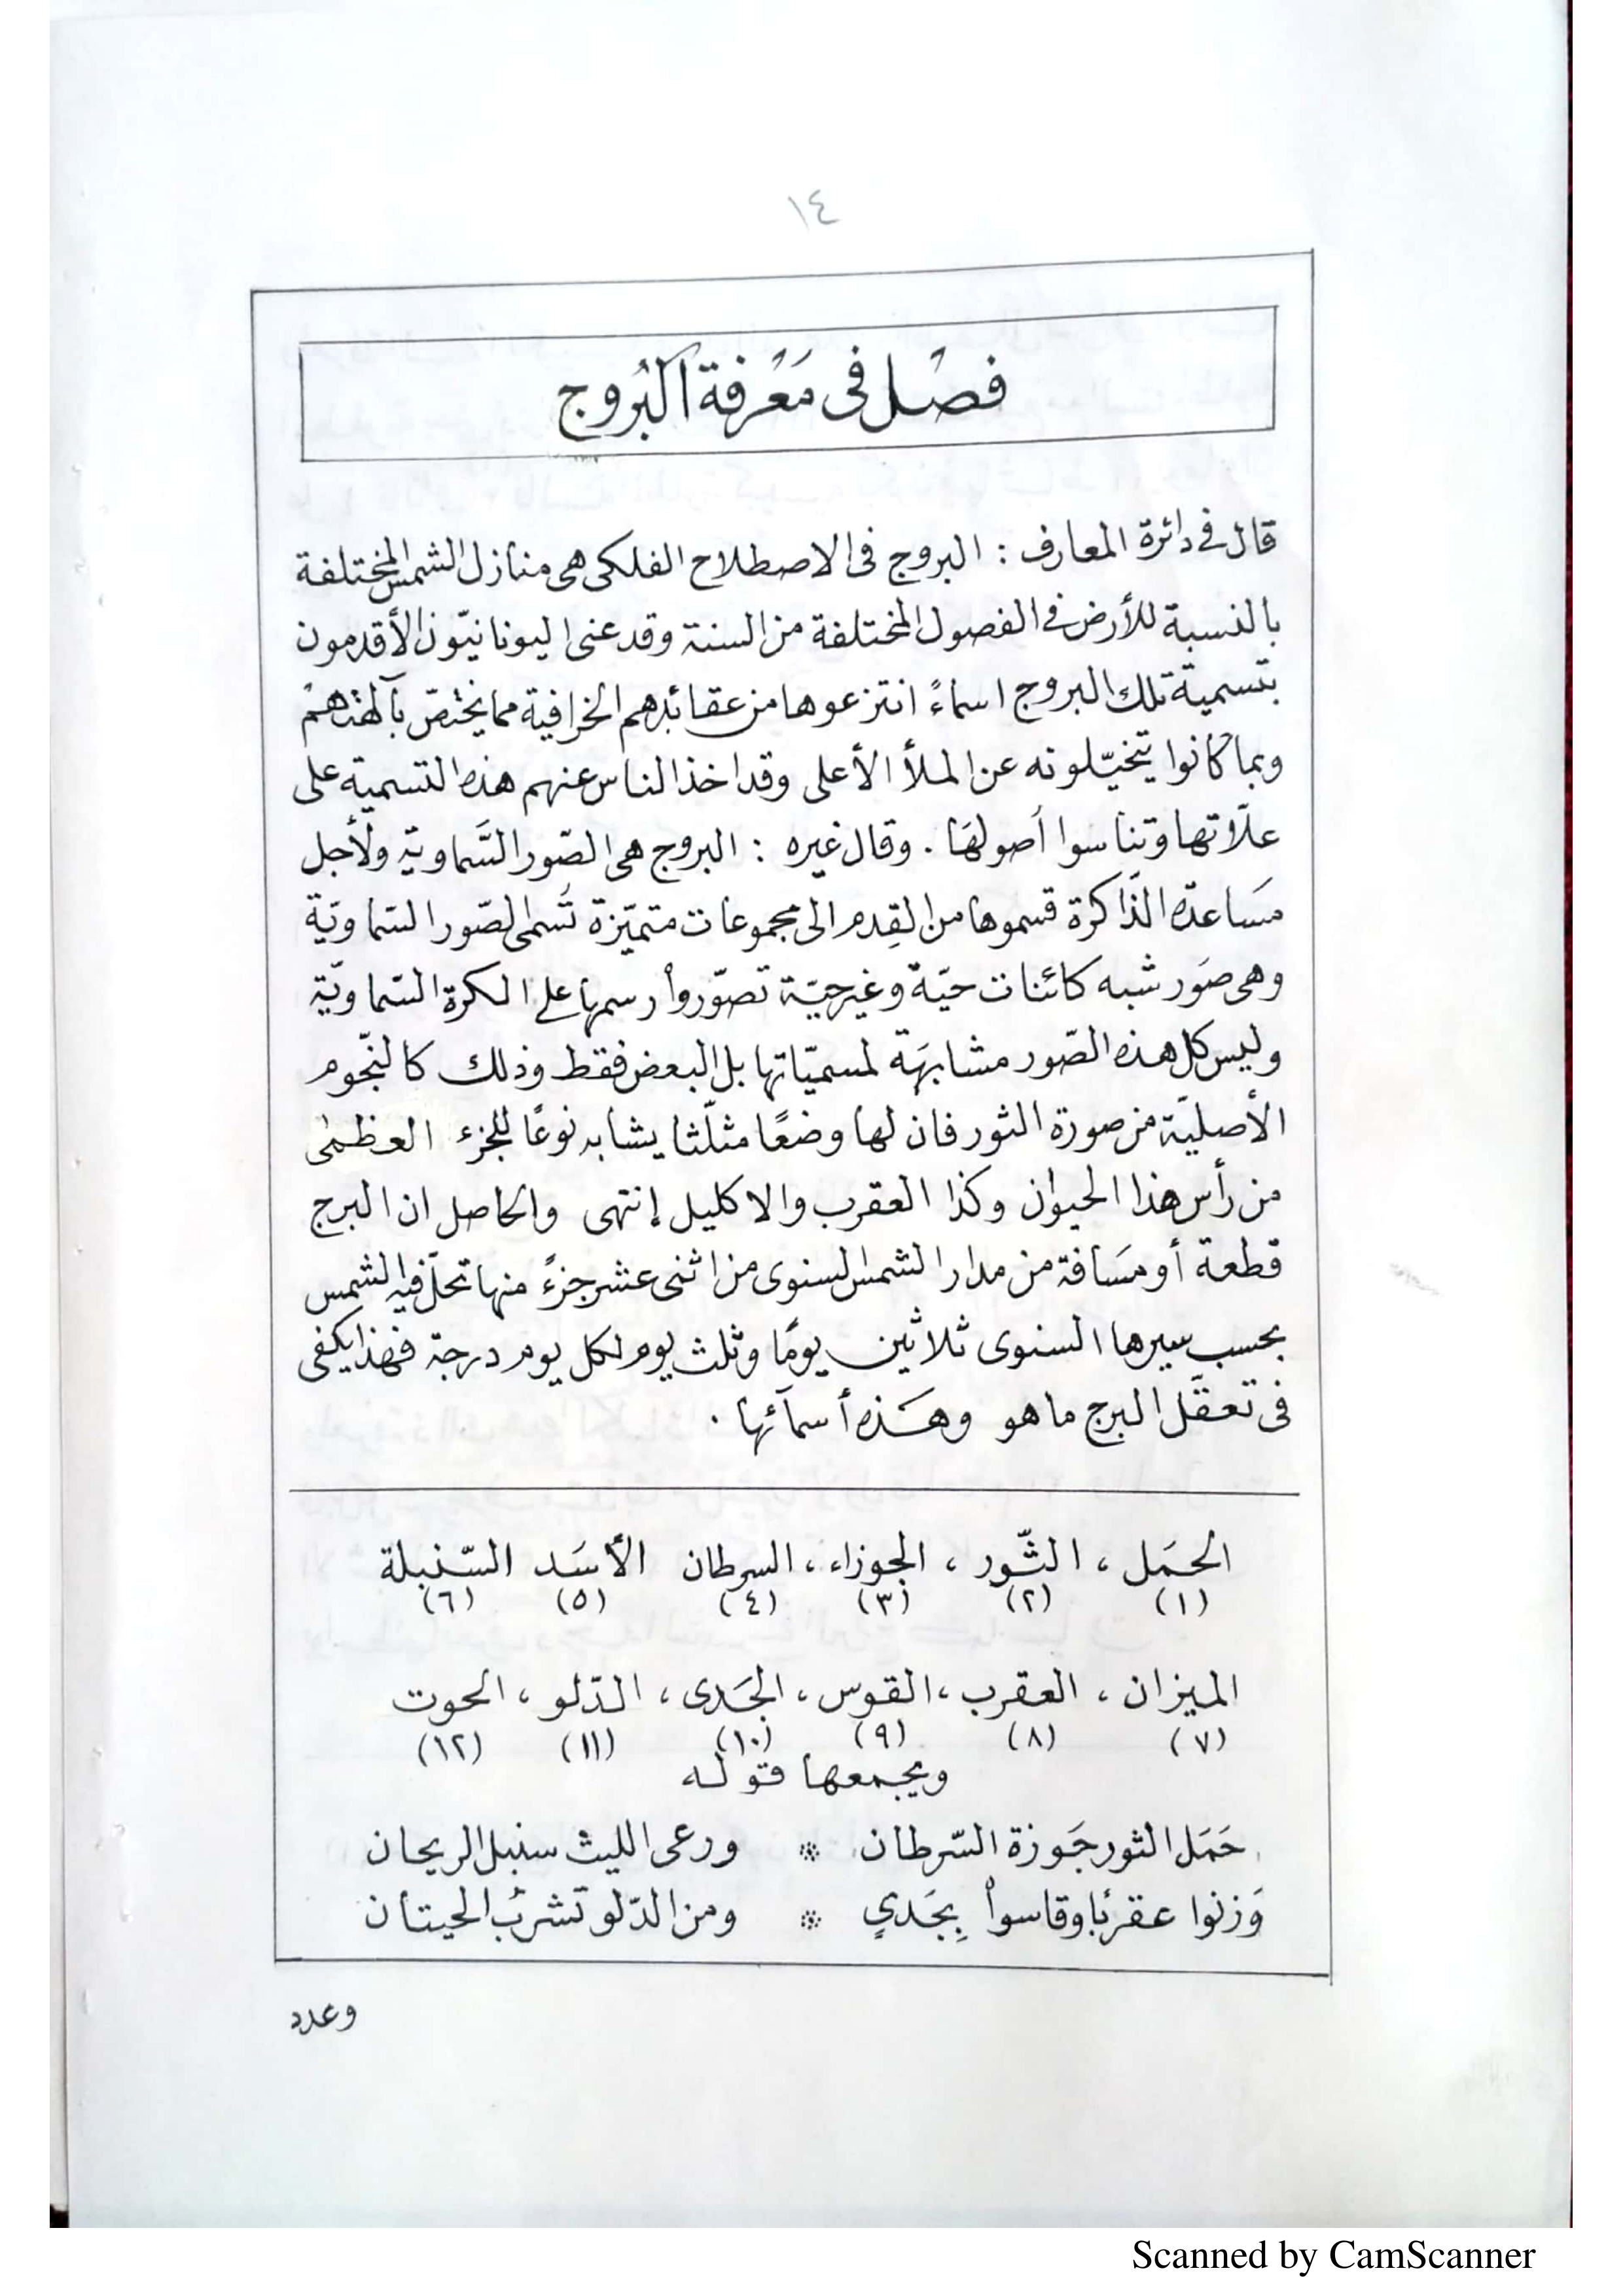 ١٤
فصْل فى مَعْرفة البُروج
قال فى دائرة المعارف : البروج فى الاصطلاح الفلكى هى منازل الشمس المختلفة
بالنسبة للأرض فى الفصول المختلفة من السنة وقد عنى اليونانيّون الأقدمون
بتسمية تلك البروج اسماءً انتزعوها من عقائدهم الخرافية مما يختصّ بآلهتهم
وبما كانوا يتخيّلونه عن الملأ الأعلى وقد اخذ الناس عنهم هذه التسمية على
علّاتها وتناسوا أصولهَا . وقال غيره : البروج هى الصّور السَّماوية ولأجل
مسَاعدة الذّاكرة قسموها من القِدم الى مجموعات متميّزة تُسَمى الصّور السّماويّة
وهى صوَر شبه كائنات حيّة وغير حيّة تصوّروا رسمها على الكرة السّماويّة
وليس كل هذه الصّور مشابهَة لمسميّاتها بل البعض فقط وذلك كالنّجوم
الأصليّة من صورة الثور فان لها وضعًا مثلّثا يشابه نوعًا للجزء العظمى
من رأس هذا الحيوان وكذا العقرب والاكليل إنتهى والحاصل ان البرج
قطعة أو مسَافة من مدار الشمس السنوى من اثنى عشر جزءً منها تحلّ فيه الشمس
بحسب سيرها السنوى ثلاثين يومًا وثلث يوم لكل يوم درجة فهذا يكفى
فى تعقّل البرج ما هو وهَذه أسمآئها .
الحمَل ، الثّور ، الجوزاء ، السرطان الأسَد السّنبلة
(١) (٢) (٣) (٤) (٥) (٦)
الميزان ، العقرب ، القوس ، الجَدى ، الدّلو ، الحوت
(٧) (٨) (٩) (١٠) (١١) (١٢)
ويجمعها قوله
حَمَل الثور جَوزة السّرطان ※ ورعى الليث سنبل الريحان
وَزنوا عقربًا وقاسوا بِجَديٍ ※ ومن الدّلو تشربُ الحيتان
وعدد
Scanned by CamScanner